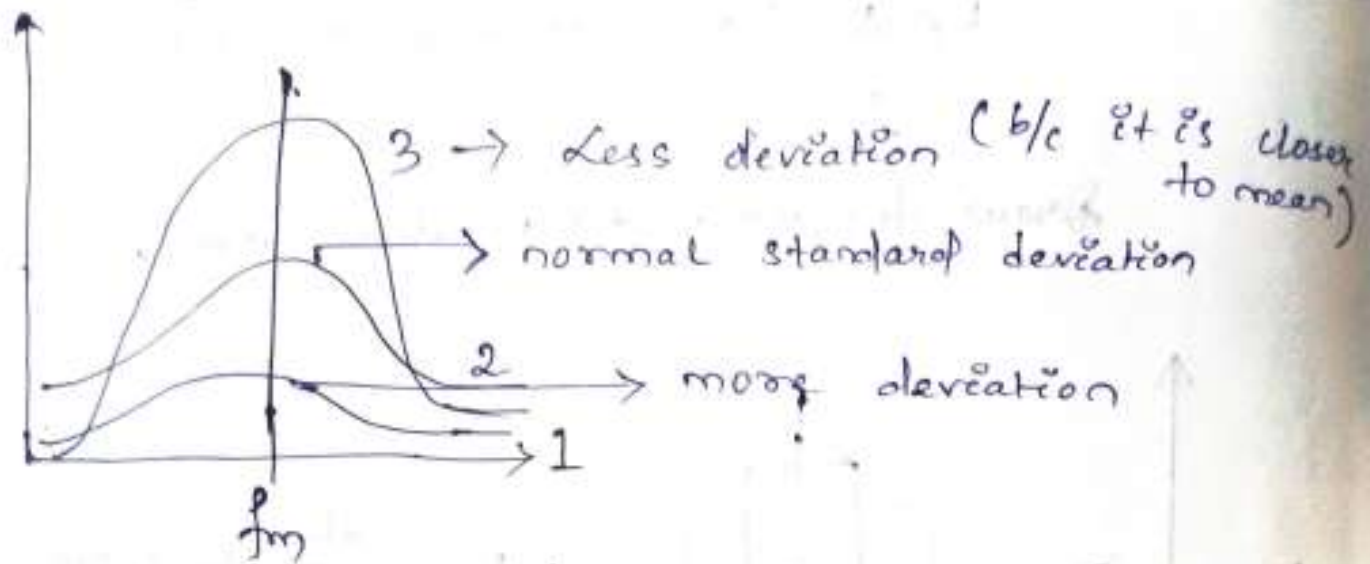 3 → Less deviation (b/c it is closer
to mean)
→ normal standard deviation
2 → more deviation
1
fm